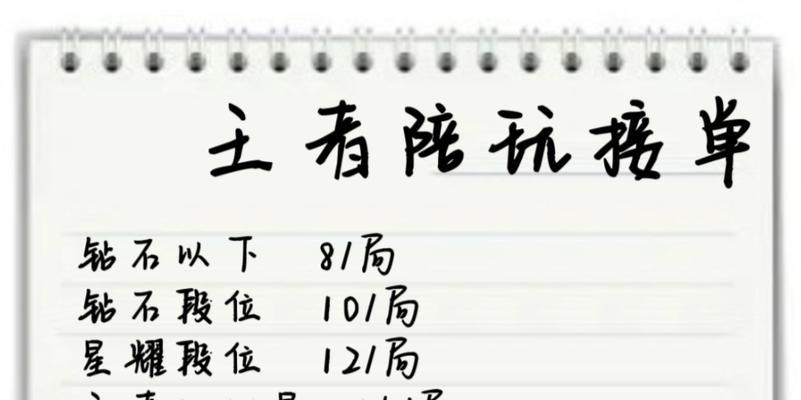 王者陪玩接单
钻石以下 8/局
钻石段位 10/局
星耀段位 12/局